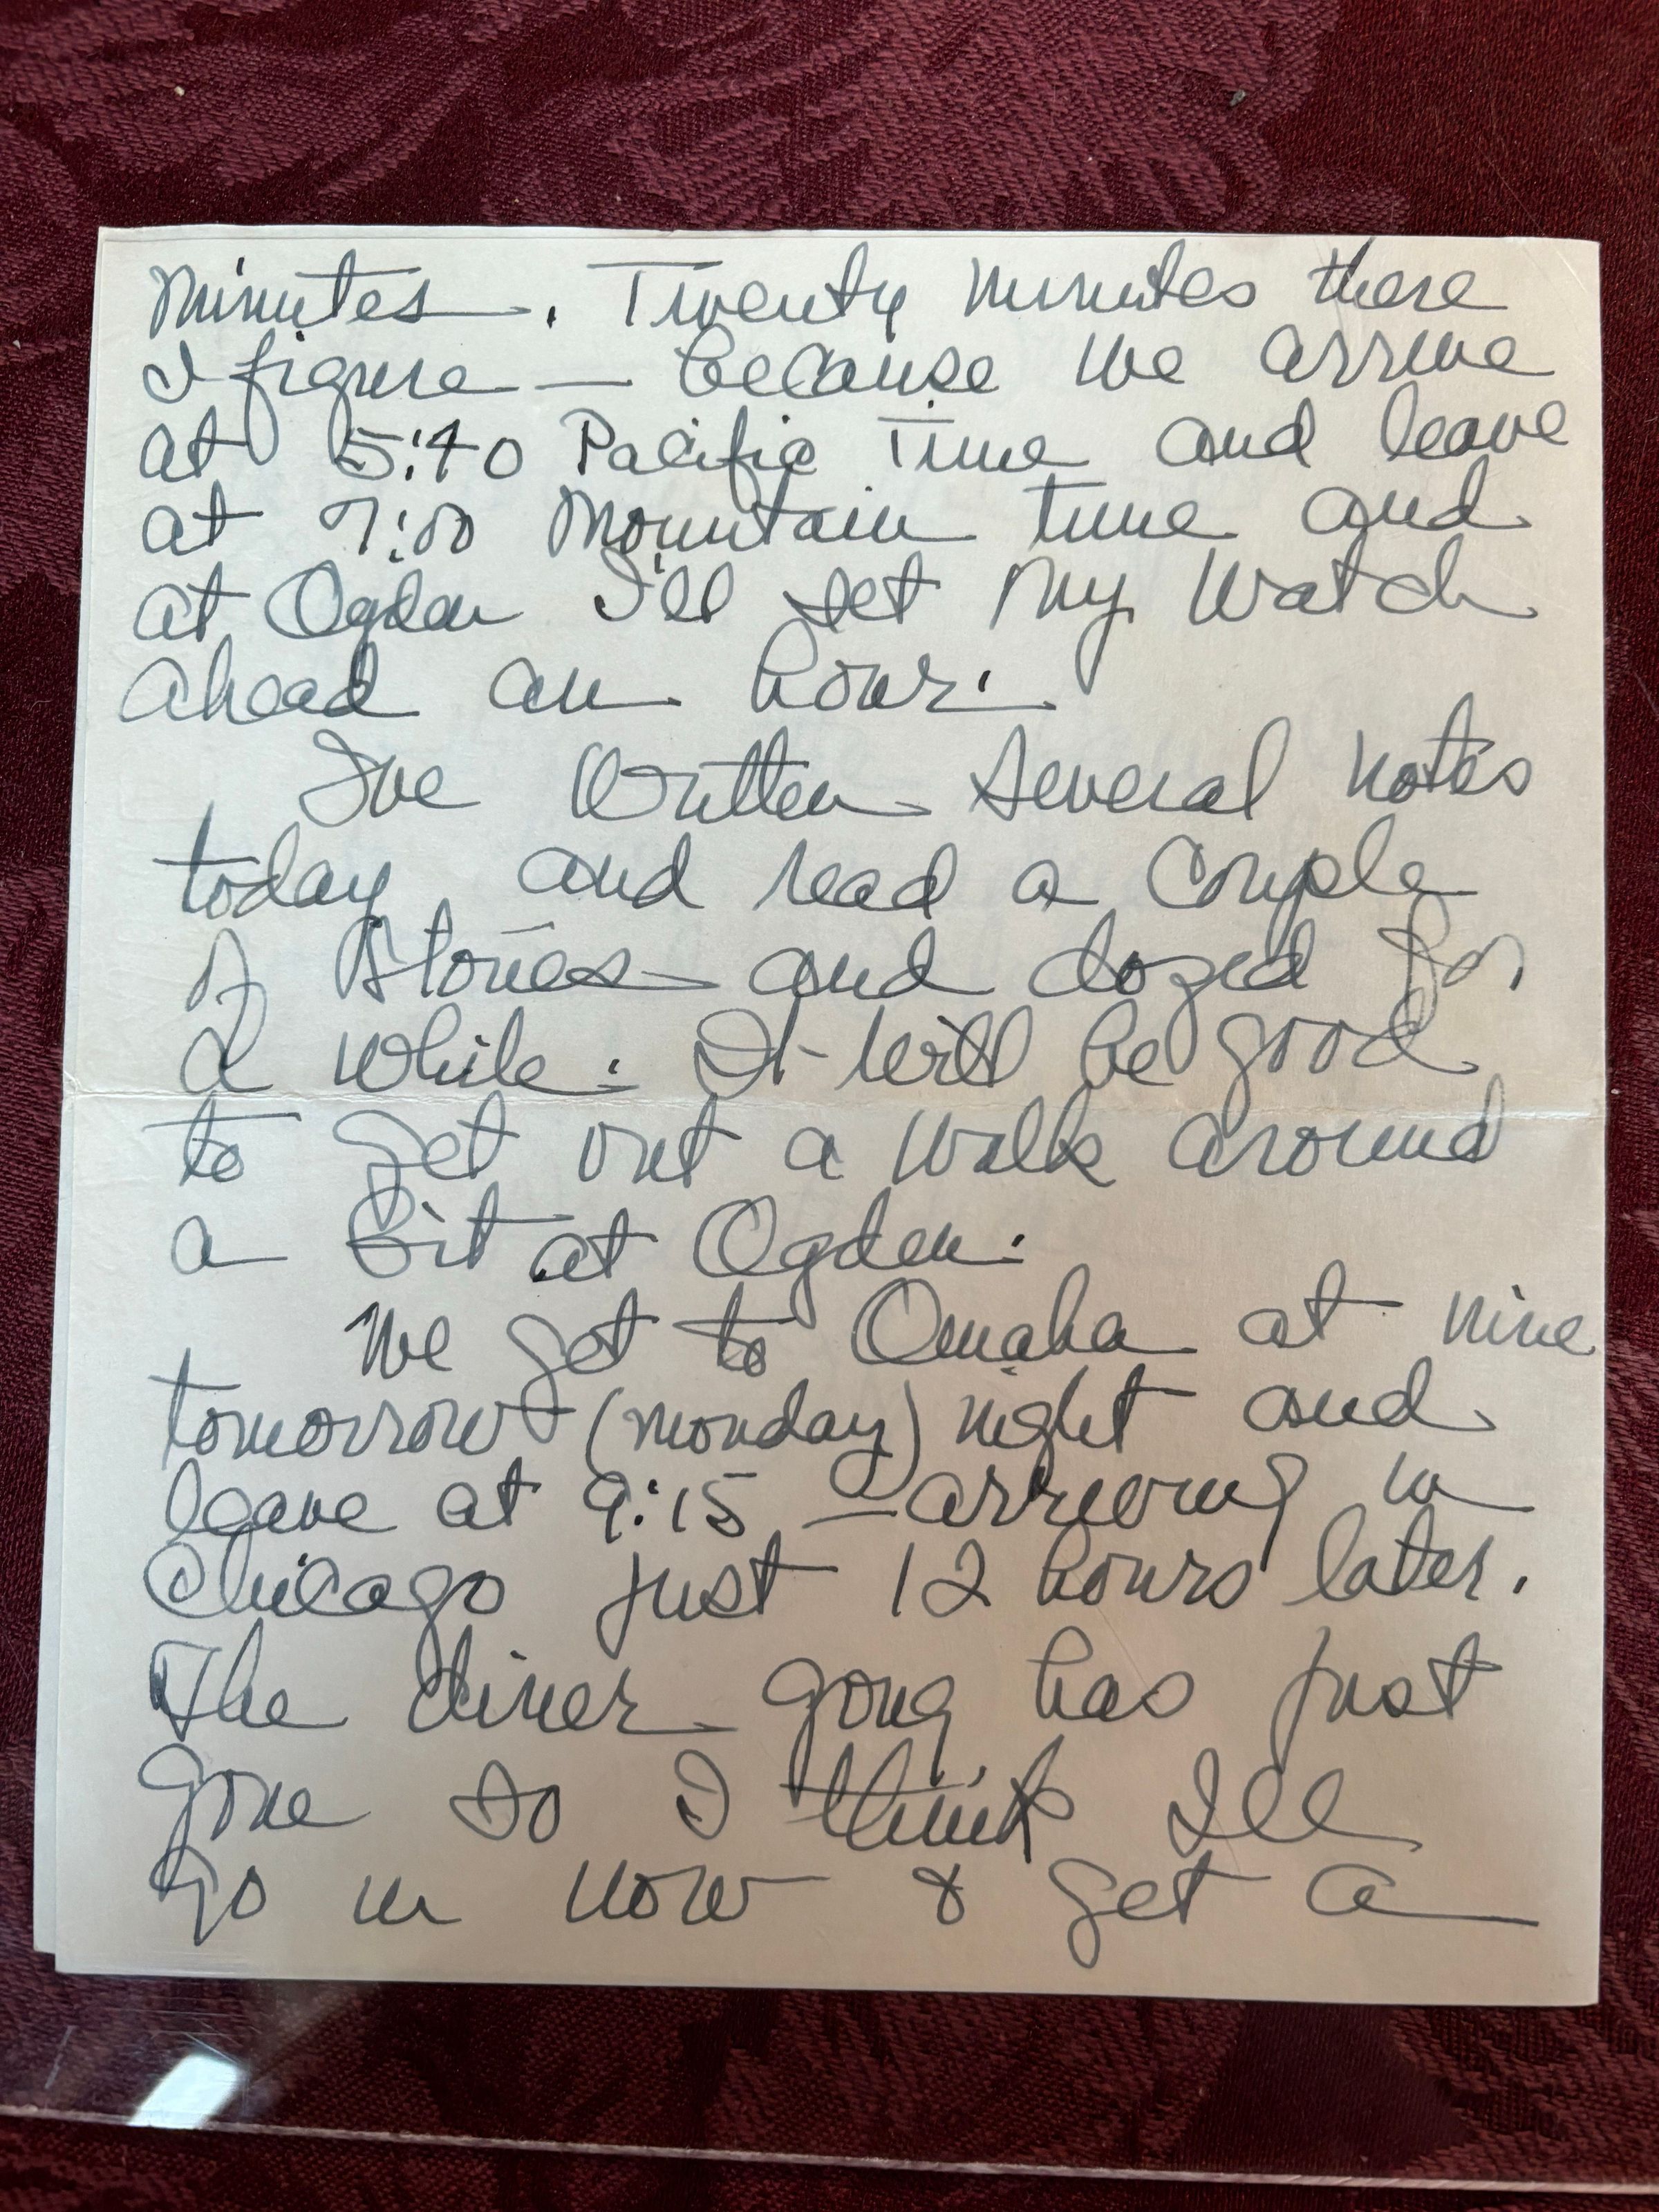 minutes. Twenty minutes there
I figure — because we arrive
at 5:40 Pacific Time and leave
at 7:00 Mountain time and
at Ogden I'll set my watch
ahead an hour.
I've written several notes
today and read a couple
of stories and dozed for
a while. It will be good
to get out a walk around
a bit at Ogden.
We get to Omaha at nine
tomorrow (Monday) night and
leave at 9:15 — arriving in
Chicago just 12 hours later.
The diner gong has just
gone so I think I'll
go in now & get a